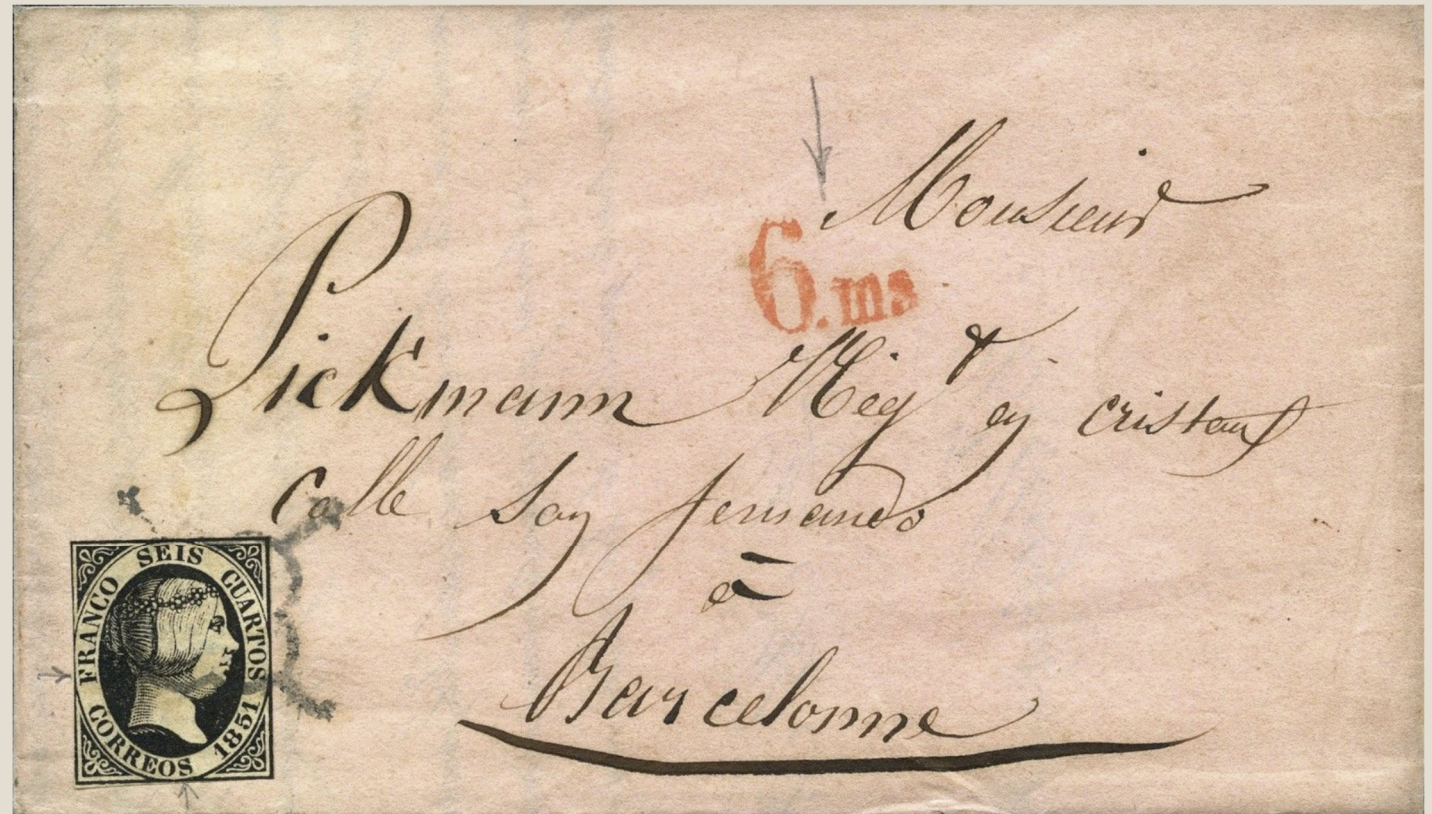 Monsieur
6.ms
Pickmann Negt en cristaux
Calle San fernando
à
Barcelonne
FRANCO SEIS CUARTOS
CORREOS 1851